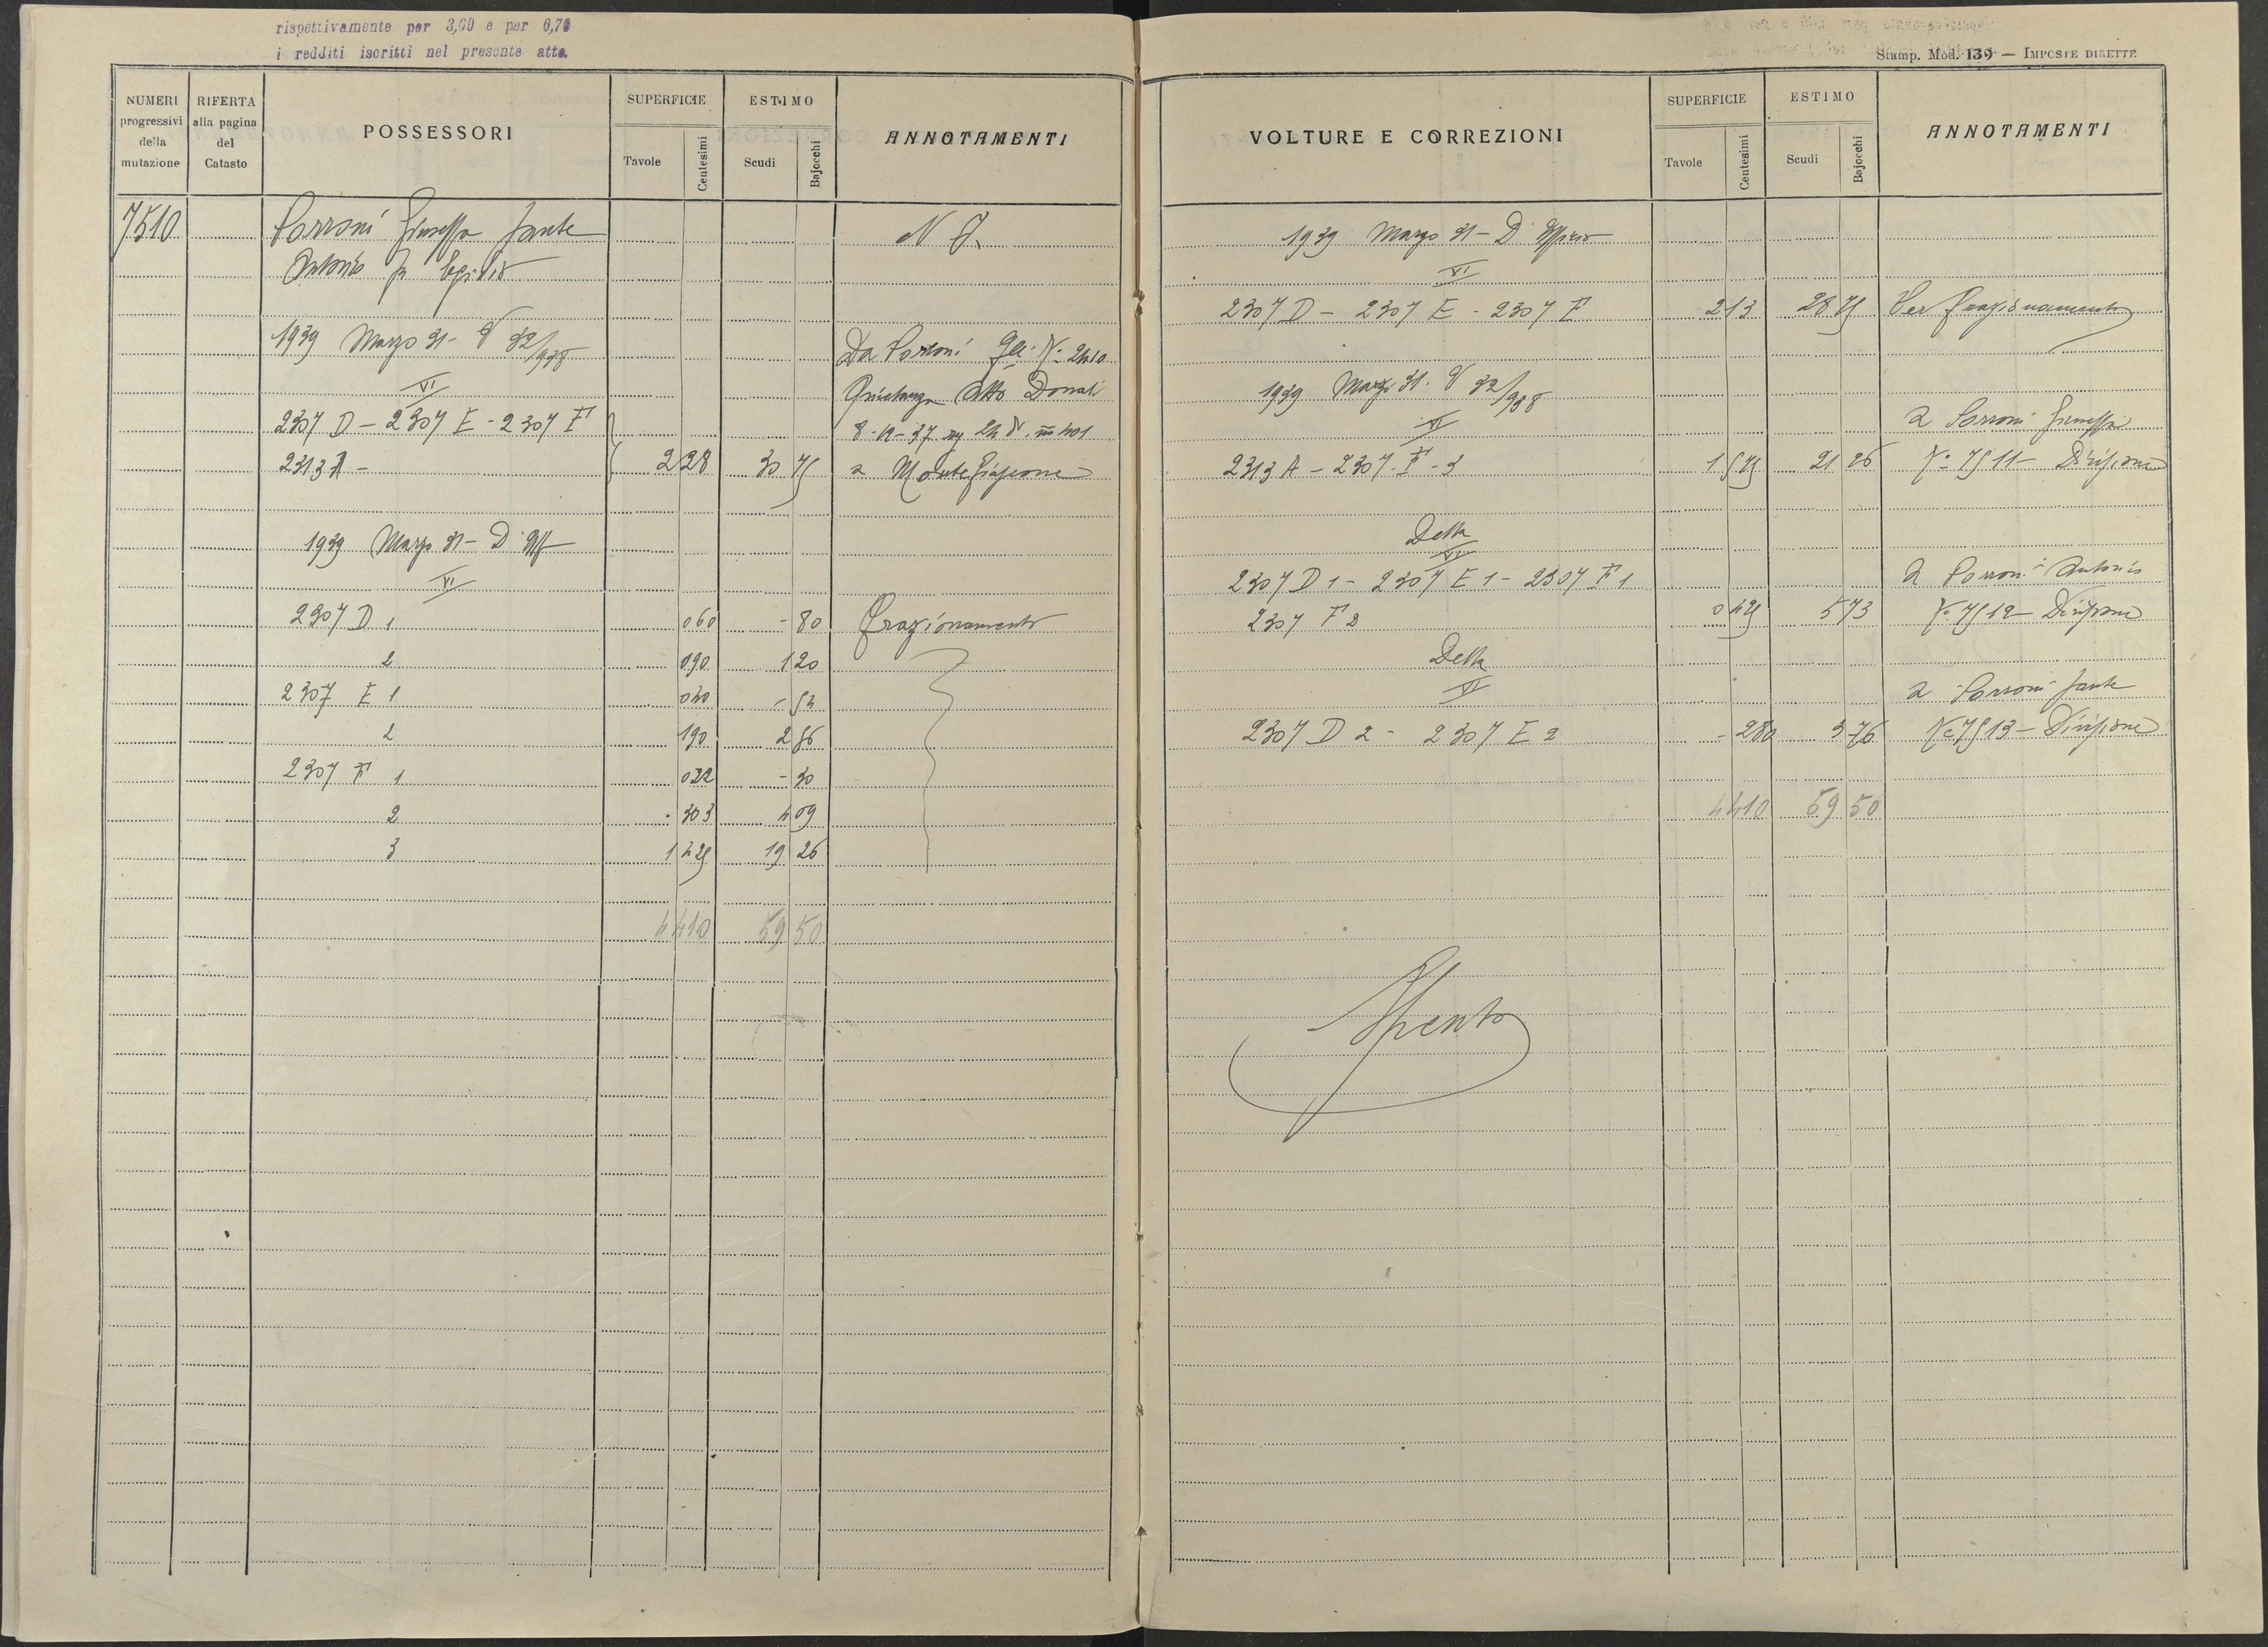 rispettivamente per 3,60 e per 6,70
i redditi iscritti nel presente atto.
NUMERI progressivi della mutazione
RIFERTA alla pagina del Catasto
POSSESSORI
SUPERFICIE
Tavole
Centesimi
ESTIMO
Scudi
Bajocchi
ANNOTAMENTI
7510 Porroni Giuseppe Sante N I.
Antonio fu Egidio
1939 Marzo 31- V 32/938 Da Porroni N: 2410
VI Quietanza Atto Donati
2307 D - 2307 E - 2307 F
2313 A - 2 28 30 75 a Montefiascone
1939 Marzo 31- D' Uff
VI
2307 D 1 0 60 - 80 Frazionamento
2 0 90 1 20
2307 E 1 0 40 - 54
2 1 90 2 56
2307 F 1 0 22 - 30
2 - 303 4 09
3 1 425 19 26
4 410 59 50
Stamp. Mod. 139 — IMPOSTE DIRETTE
VOLTURE E CORREZIONI
SUPERFICIE
Tavole
Centesimi
ESTIMO
Scudi
Bajocchi
ANNOTAMENTI
1939 Marzo 31- D' Ufficio
VI
2307 D - 2307 E - 2307 F 2 13 28 75 Per frazionamento
1939 Marzo 31. V 32/938
VI a Porroni Giuseppe
2313 A - 2307 F - 3 1 575 21 26 N: 7511- Divisione
Detta
VI
2307 D 1 - 2307 E 1 - 2307 F 1 a Porroni Antonio
2307 F 2 0 425 5 73 N: 7512- Divisione
Detta
VI a Porroni Sante
2307 D 2 - 2307 E 2 - 280 3 76 N: 7513- Divisione
4 410 59 50
Spento